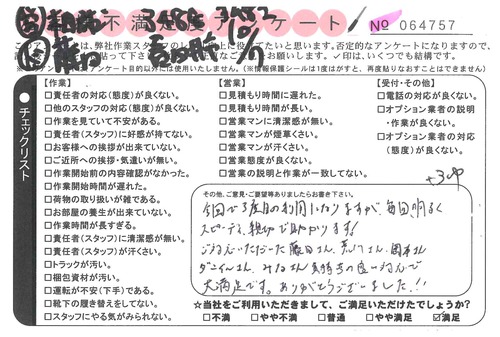 不満足度アンケート
№ 064757
このアンケートは、弊社作業スタッフのレベル
に役立てたいと思います。否定的なアンケートになりますので、
貼って下さい
✓印は、いくつでも結構です。
アンケート目的以外には使用いたしません。(※情報保護シールは1度はがすと、再度貼りなおすことはできません)
チェックリスト
【作業】
□責任者の対応(態度)が良くない。
□他のスタッフの対応(態度)が良くない。
□作業を見ていて不安がある。
□責任者(スタッフ)に好感が持てない。
□お客様への挨拶が出来ていない。
□ご近所への挨拶・気遣いが無い。
□作業開始前の内容確認がなかった。
□作業開始時間が遅れた。
□荷物の取り扱いが雑である。
□お部屋の養生が出来ていない。
□作業時間が長すぎる。
□責任者(スタッフ)に清潔感が無い。
□責任者(スタッフ)が汗くさい。
□トラックが汚い。
□梱包資材が汚い。
□運転が不安(下手)である。
□靴下の履き替えをしてない。
□スタッフにやる気がみられない。
【営業】
□見積もり時間に遅れた。
□見積もり時間が長い。
□営業マンに清潔感が無い。
□営業マンが煙草くさい。
□営業マンが汗くさい。
□営業態度が良くない。
□営業の説明と作業が一致してない。
【受付・その他】
□電話の対応が良くない。
□オプション業者の説明
・作業が良くない。
□オプション業者の対応
(態度)が良くない。
その他、ご意見・ご要望等ありましたらお書き下さい。
今回で3度目の利用になりますが、毎回明るく
スピーディ、親切で助かります!
藤田さん、荒川さん、岡本さん
ダニイルさん、みねさん 気持ちの良い
大満足です。ありがとうございました!!
☆当社をご利用いただきまして、ご満足いただけたでしょうか?
□不満 □やや不満 □普通 □やや満足 ☑満足